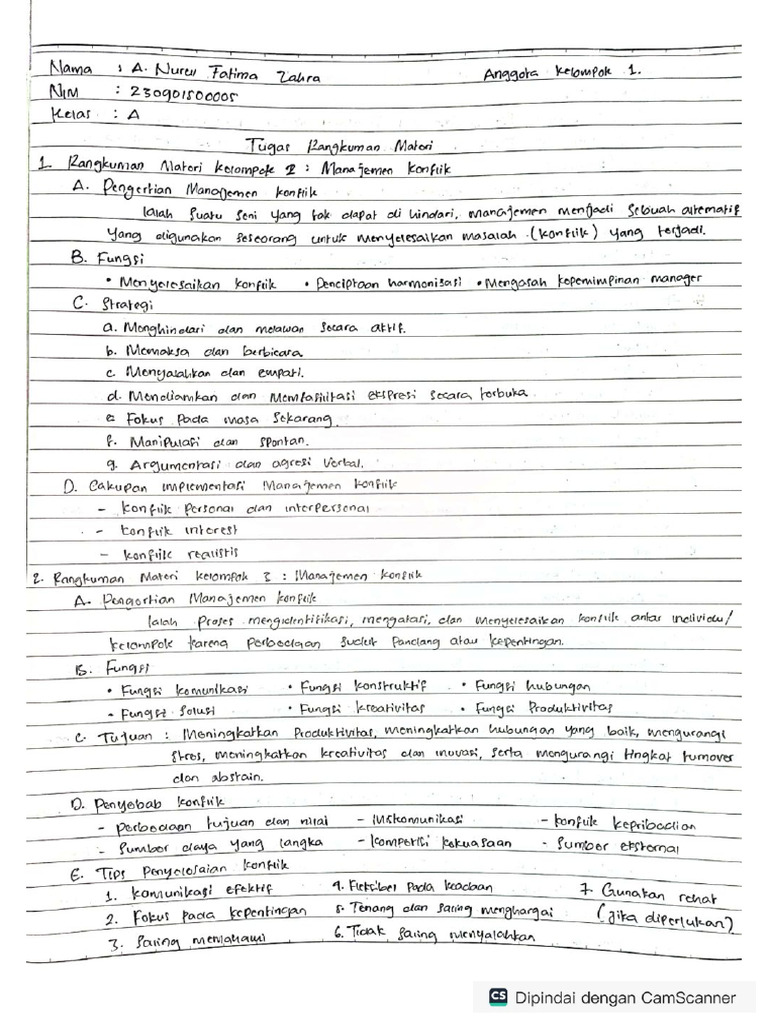 Nama : A. Nurul Fatima Zahra Anggota Kelompok 1.
NIM : 230901500005
Kelas : A
Tugas Rangkuman Materi
1. Rangkuman Materi Kelompok 2 : Manajemen Konflik
A. Pengertian Manajemen Konflik
Ialah suatu seni yang tak dapat di hindari, manajemen menjadi sebuah alternatif
yang digunakan seseorang untuk menyelesaikan masalah (konflik) yang terjadi.
B. Fungsi
• Menyelesaikan konflik • Penciptaan harmonisasi • Mengasah kepemimpinan manager
C. Strategi
a. Menghindari dan melawan secara aktif.
b. Memaksa dan berbicara.
c. Menyalahkan dan empati.
d. Mendiamkan dan Memfasilitasi ekspresi secara terbuka.
e. Fokus pada masa sekarang.
f. Manipulasi dan spontan.
g. Argumentasi dan agresi verbal.
D. Cakupan implementasi Manajemen Konflik
- Konflik personal dan interpersonal
- Konflik interest
- Konflik realistis
2. Rangkuman Materi Kelompok 3 : Manajemen Konflik
A. Pengertian Manajemen Konflik
Ialah Proses mengidentifikasi, mengatasi, dan menyelesaikan konflik antar individu/
kelompok karena perbedaan sudut pandang atau kepentingan.
B. Fungsi
• Fungsi komunikasi • Fungsi konstruktif • Fungsi hubungan
• Fungsi solusi • Fungsi kreativitas • Fungsi Produktivitas
C. Tujuan : Meningkatkan Produktivitas, meningkatkan hubungan yang baik, mengurangi
stres, meningkatkan kreativitas dan inovasi, serta mengurangi tingkat turnover
dan abstain.
D. Penyebab konflik
- perbedaan tujuan dan nilai - Miskomunikasi - konflik kepribadian
- Sumber daya yang langka - kompetisi kekuasaan - Sumber eksternal
E. Tips Penyelesaian Konflik
1. Komunikasi efektif 4. Fleksibel pada keadaan 7. Gunakan rehat
2. Fokus pada kepentingan 5. Tenang dan saling menghargai (jika diperlukan)
3. Saling memahami 6. Tidak saling menyalahkan
CS Dipindai dengan CamScanner